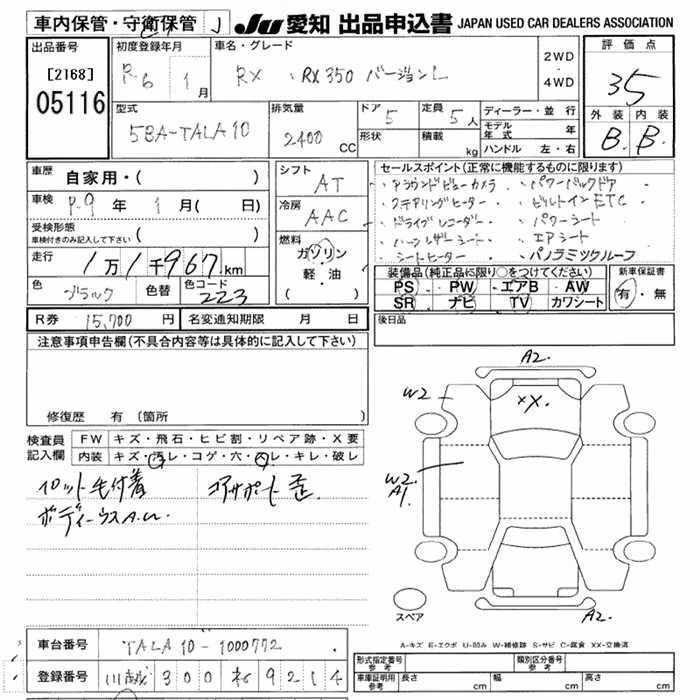 車内保管・守衛保管 J JU 愛知 出品申込書 JAPAN USED CAR DEALERS ASSOCIATION
出品番号 [2168] 05116
初度登録年月 R6 1月
車名・グレード RX RX350 バージョンL
2WD ・ 4WD
評価点 3.5
外装 内装
B. B.
型式 5BA-TALA10
排気量 2400 CC
ドア 5 定員 5人
形状 積載 kg
ディーラー・並行
モデル年式 年
ハンドル 左・右
車歴 自家用・( )
車検 R9年 1月( 日)
受検形態 車検付きのみ記入して下さい ( )
走行 1万1千967km
色 ブラック 色替 色コード 223
シフト AT
冷房 AAC
燃料 ガソリン 軽・油 ( ・ )
セールスポイント(正常に機能するものに限ります)
・アラウンドビューカメラ ・パワーバックドア
・ステアリングヒーター ・ビルトインETC
・ドライブレコーダー ・パワーシート
・ハーンレザーシート ・エアシート
・シートヒーター ・パノラミックルーフ
装備品(純正品に限り○をつけてください)
PS PW エアB AW
SR ナビ TV カワシート
新車保証書 有・無
R券 15,700円 名変通知期限 月 日
後日品
注意事項申告欄(不具合内容等は具体的に記入して下さい)
修復歴 有 (箇所 )
検査員記入欄 FW キズ・飛石・ヒビ割・リペア跡・X要
内装 キズ・汚レ・コゲ・穴・スレ・キレ・破レ
ペット毛付着 コアサポート歪
ボディーウスA.U.
A2.
W2 XX.
W2
A1.
スペア A2.
A-キズ E-エクボ U-凹み W-補修跡 S-サビ C-腐食 XX-交換済
車台番号 TALA10-1000772
登録番号 川越 300 9214
形式指定番号 参考 類別区分番号 参考
車庫証明用参考 長さ cm 幅 cm 高さ cm